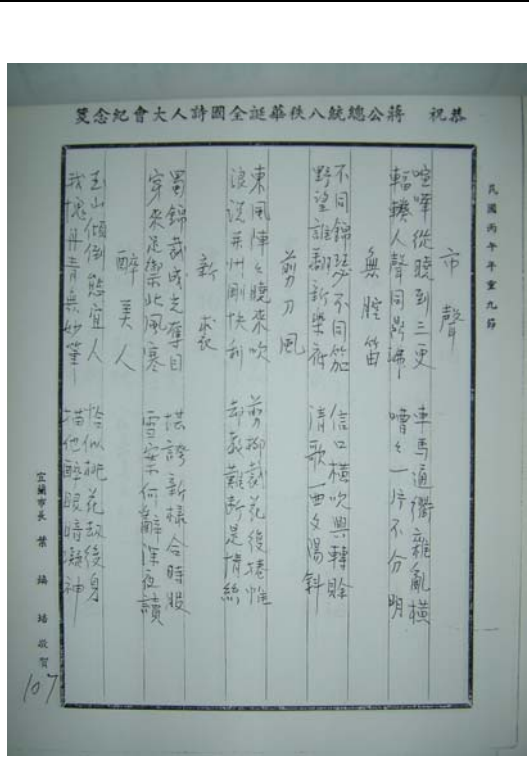 恭祝 蔣公總統八秩華誕全國詩人大會紀念箋
民國丙午年重九節
市聲
喧嘩從曉到三更 車馬通衢雜亂橫
輻輳人聲同鼎沸 嘈々一片不分明
無腔笛
不同錦瑟不同笳 信口橫吹興轉賒
野望誰翻新樂府 清歌一曲夕陽斜
剪刀風
東風陣々曉來吹 剪柳裁花後捲帷
浪說并州剛快利 却教難斷是情絲
新裘
蜀錦裁成光奪目 堪誇新樣合時
穿來足禦此風寒 雪案何辭深夜讀
醉美人
玉山傾倒態宜人 恰似桃花劫後身
我愧丹青無妙筆 描他醉眼暗凝神
宜蘭市長 葉 敬賀
107